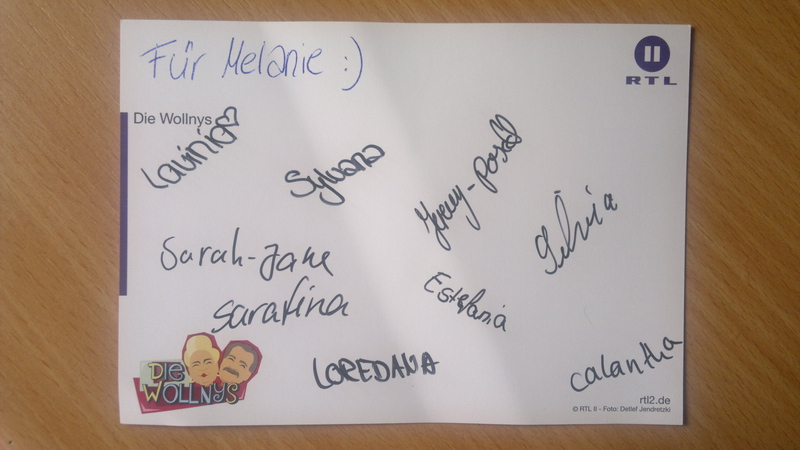 Für Melanie :)
RTL
Die Wollnys
Lavinia
Sylvana
Jeremy-Pascal
Silvia
Sarah-Jane
Estefania
Sarafina
LOREDANA
calantha
DIE
WOLLNYS
rtl2.de
© RTL II - Foto: Detlef Jendretzki